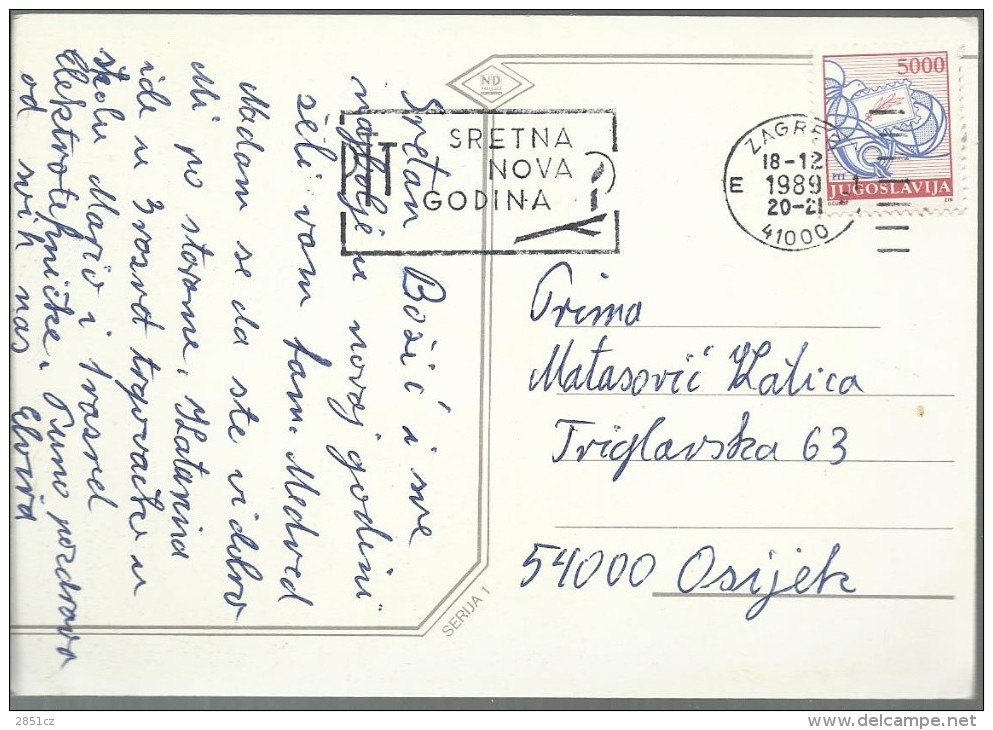 Sretan Božić i sve
najbolje u novoj godini
želi vam fam. Medved
Nadam se da ste vi dobro
Mi po starome. Katarina
ide u 3 razred trgovačke u
školu Mario i razred
Elektrotehničke. Puno pozdrava
od svih nas Elvira
ND
SRETNA
NOVA
GODINA
ZAGREB
18-12
E 1989
20-21
41000
5000
PTT
JUGOSLAVIJA
Prima
Matasović Katica
Triglavska 63
54000 Osijek
SERIJA 1
2851cz
www.delcampe.net